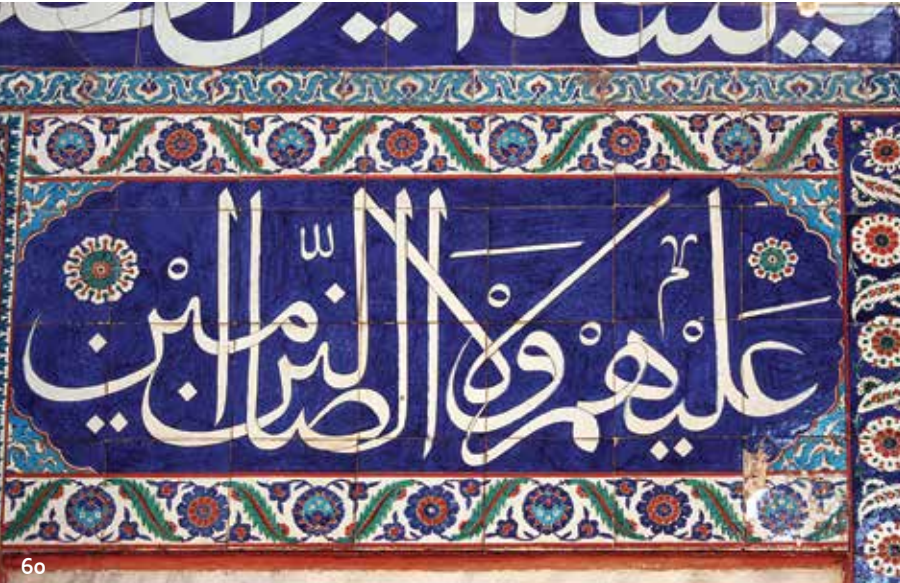 عَلَيْهِمْ وَلَا الضَّالِّينَ اٰمِينَ
60